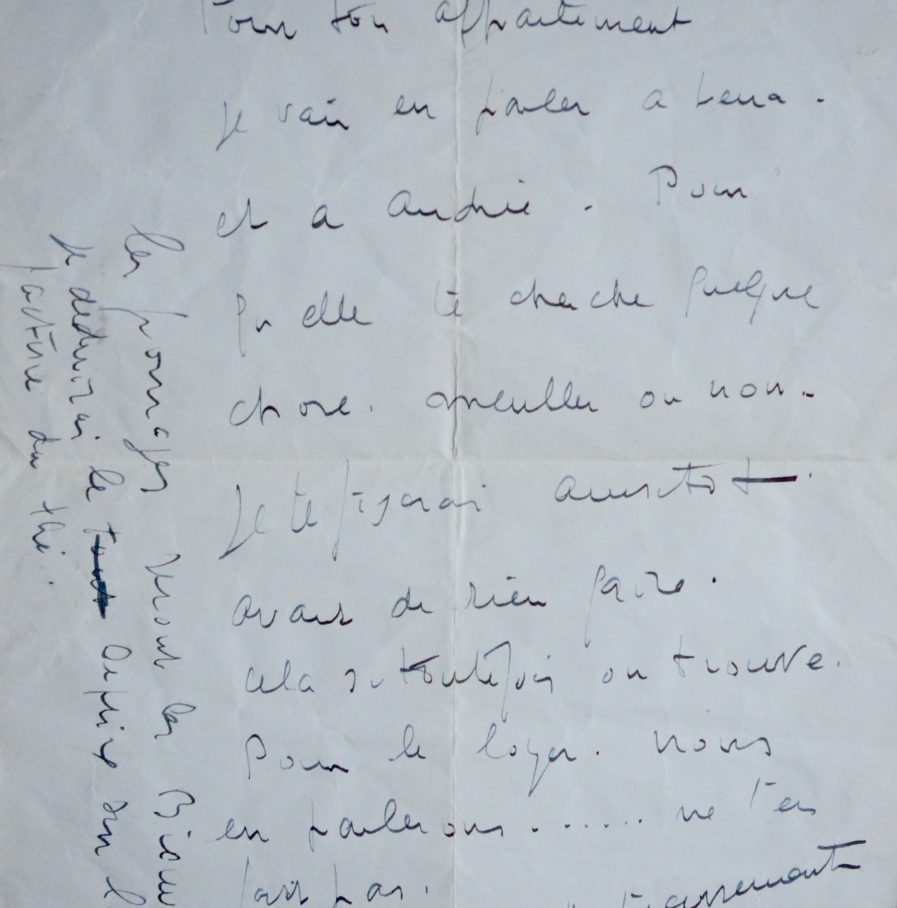 Pour ton appartement
je vais en parler a Lena.
et a Andrée. Pour
qu elle te cherche quelque
chose. meubler ou non.
Je te ferai aussitot.
avant de rien faire.
cela si toutefois on trouve.
Pour le loyer. nous
en parlerons....... ne t'en
fait pas.
les fromages sont les Bien
je deduirai le tout depuis sur l
facture du thé.